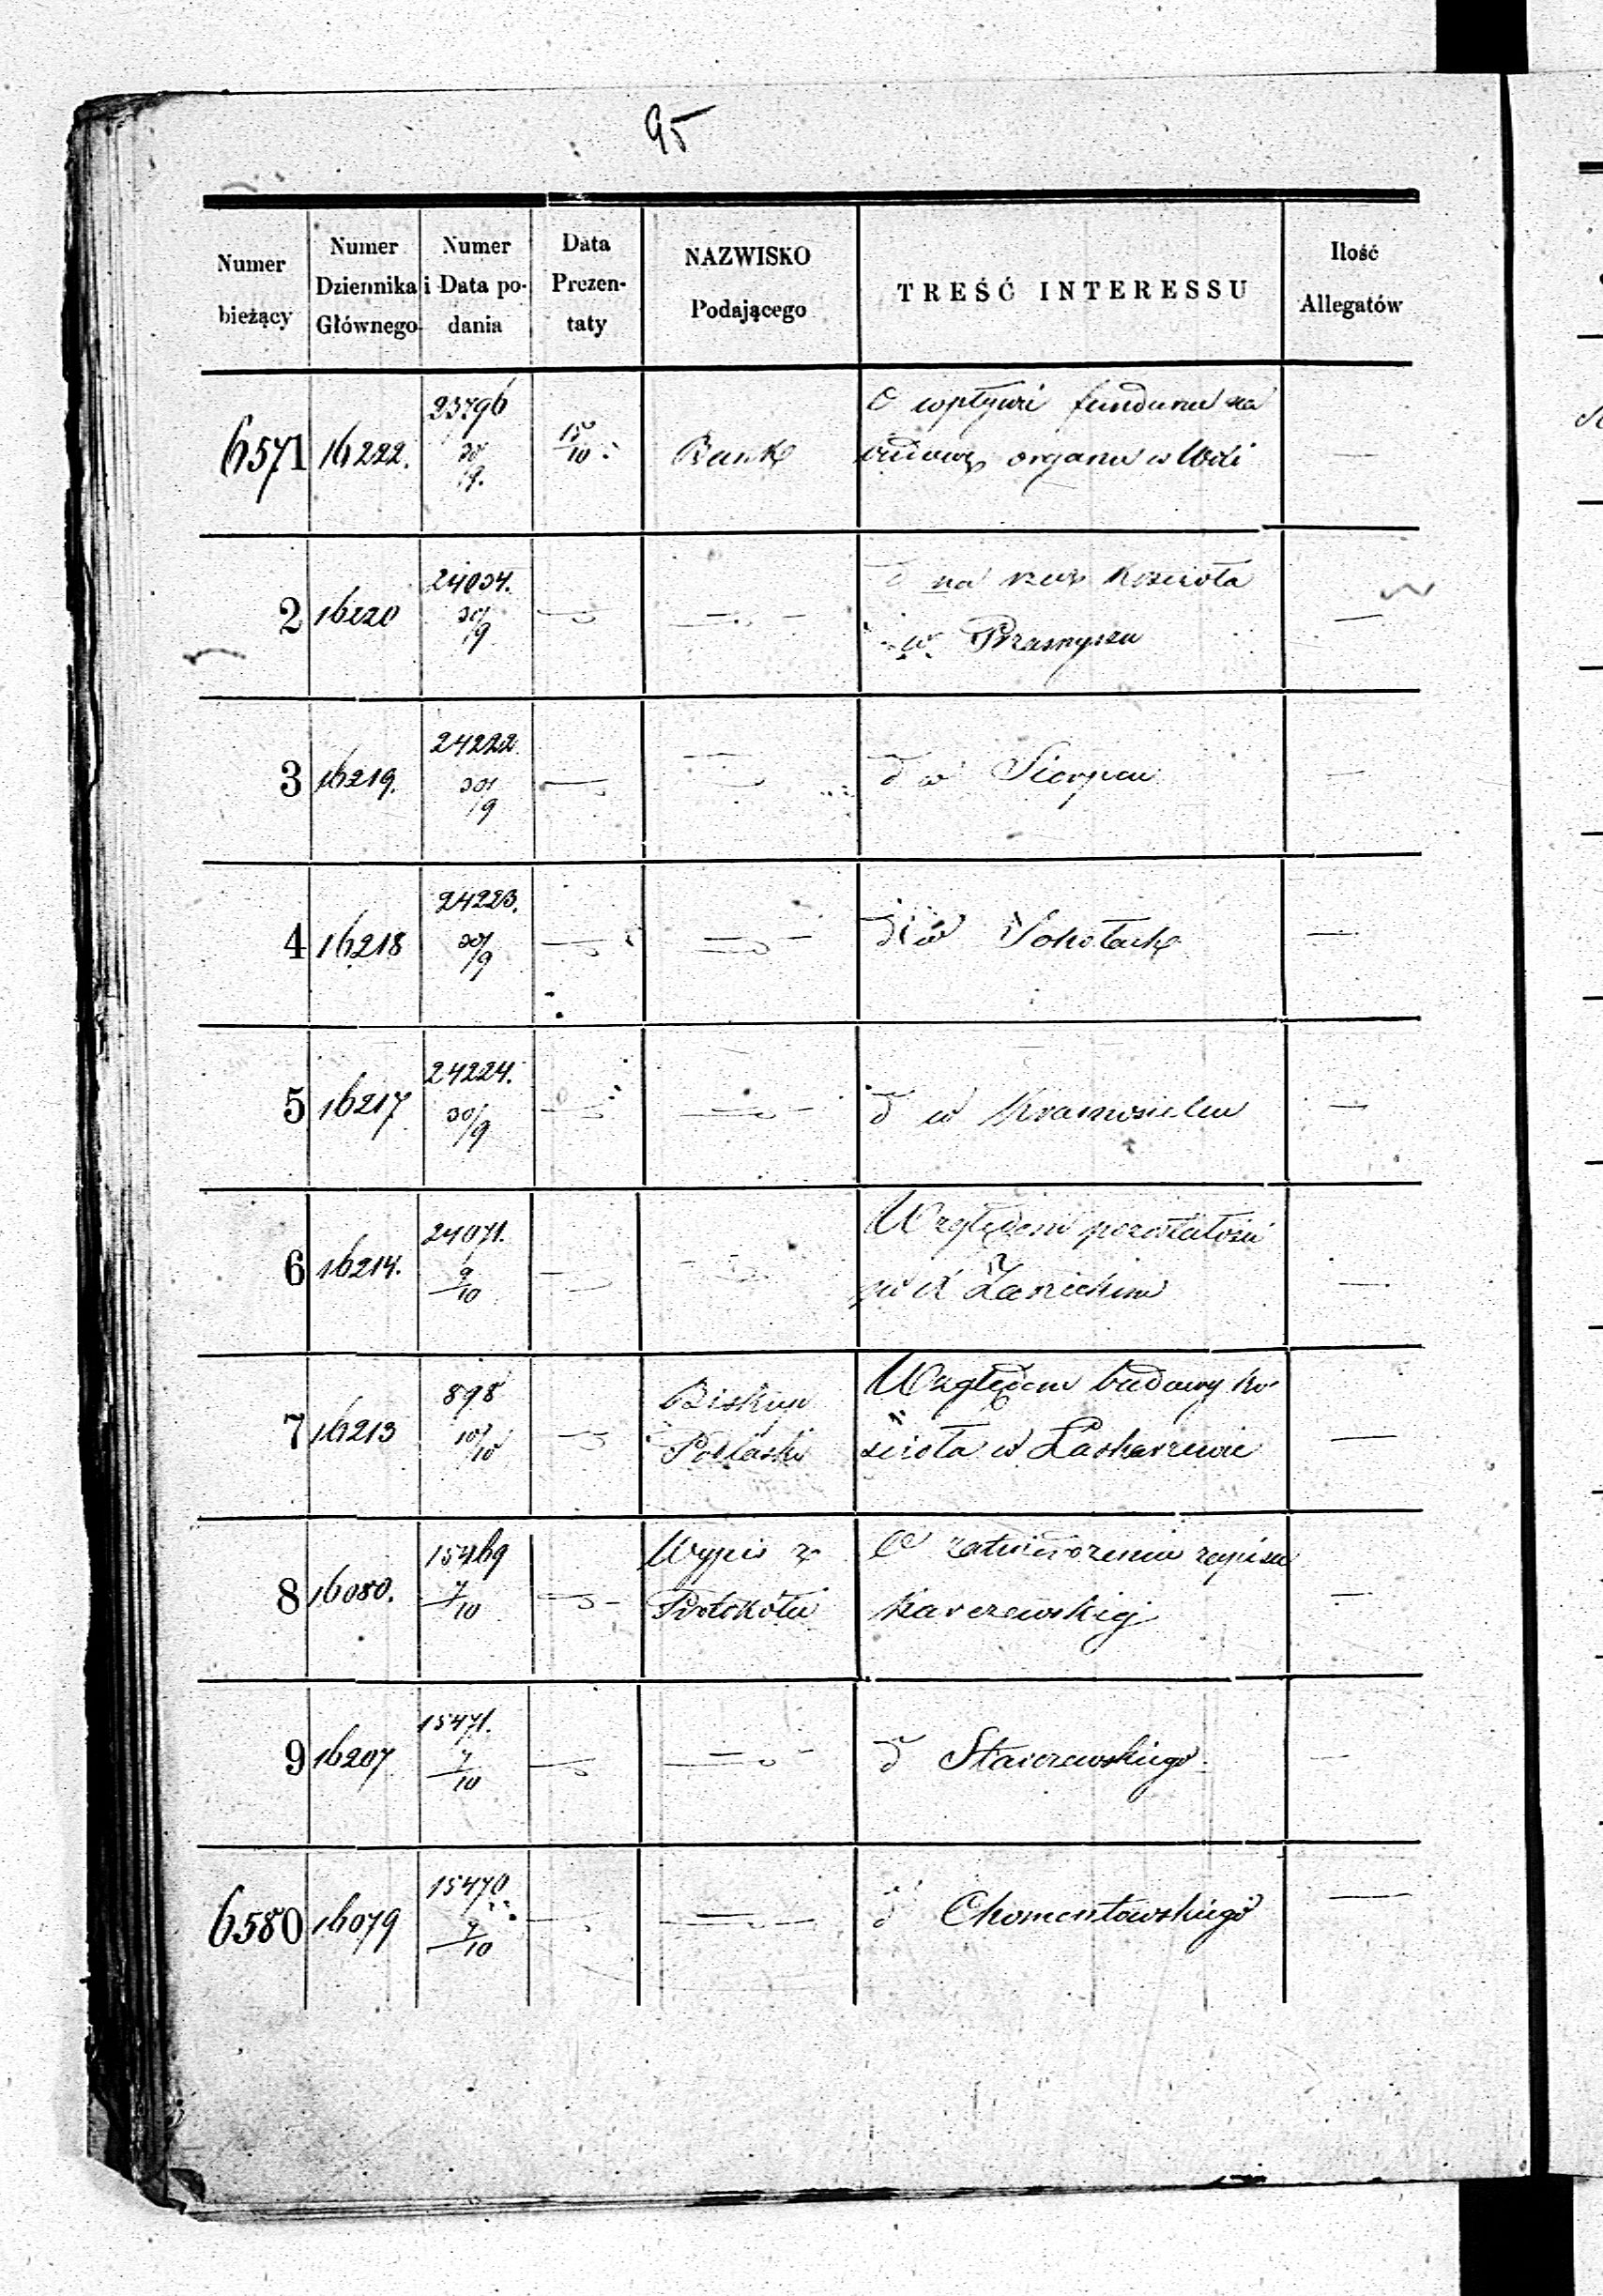 95
Numer bieżący | Numer Dziennika Głównego | Numer i Data podania | Data Prezentaty | NAZWISKO Podającego | TREŚĆ INTERESSU | Ilość Allegatów
6571 | 16222. | 23796 30/9. | 15/10 | Bank | O wpływie funduszu na
budowę organu w Woli | —
2 | 16220 | 24034. 30/9 | — | — | d na rzecz Kościoła
w Przasnyszu | —
3 | 16219. | 24222. 30/9 | — | — | d w Sierpcu | —
4 | 16218 | 24223. 30/9 | — | — | d w | —
5 | 16217 | 24224. 30/9 | — | — | d w Krasnosielcu | —
6 | 16214. | 24071. 9/10 | — | — | Względem pozostałości
po X | —
7 | 16213 | 898 10/10 | — | Biskup
Podlaski | Względem budowy ko-
ścioła w Łaskarzewie | —
8 | 16080. | 15469 7/10 | — | Wypis z
Protokółu | O zatwierdzenie zapisu
Karczewskiej | —
9 | 16207 | 15471. 7/10 | — | — | d Starczewskiego | —
6580 | 16079 | 15470 7/10 | — | — | d Chomentowskiego | —